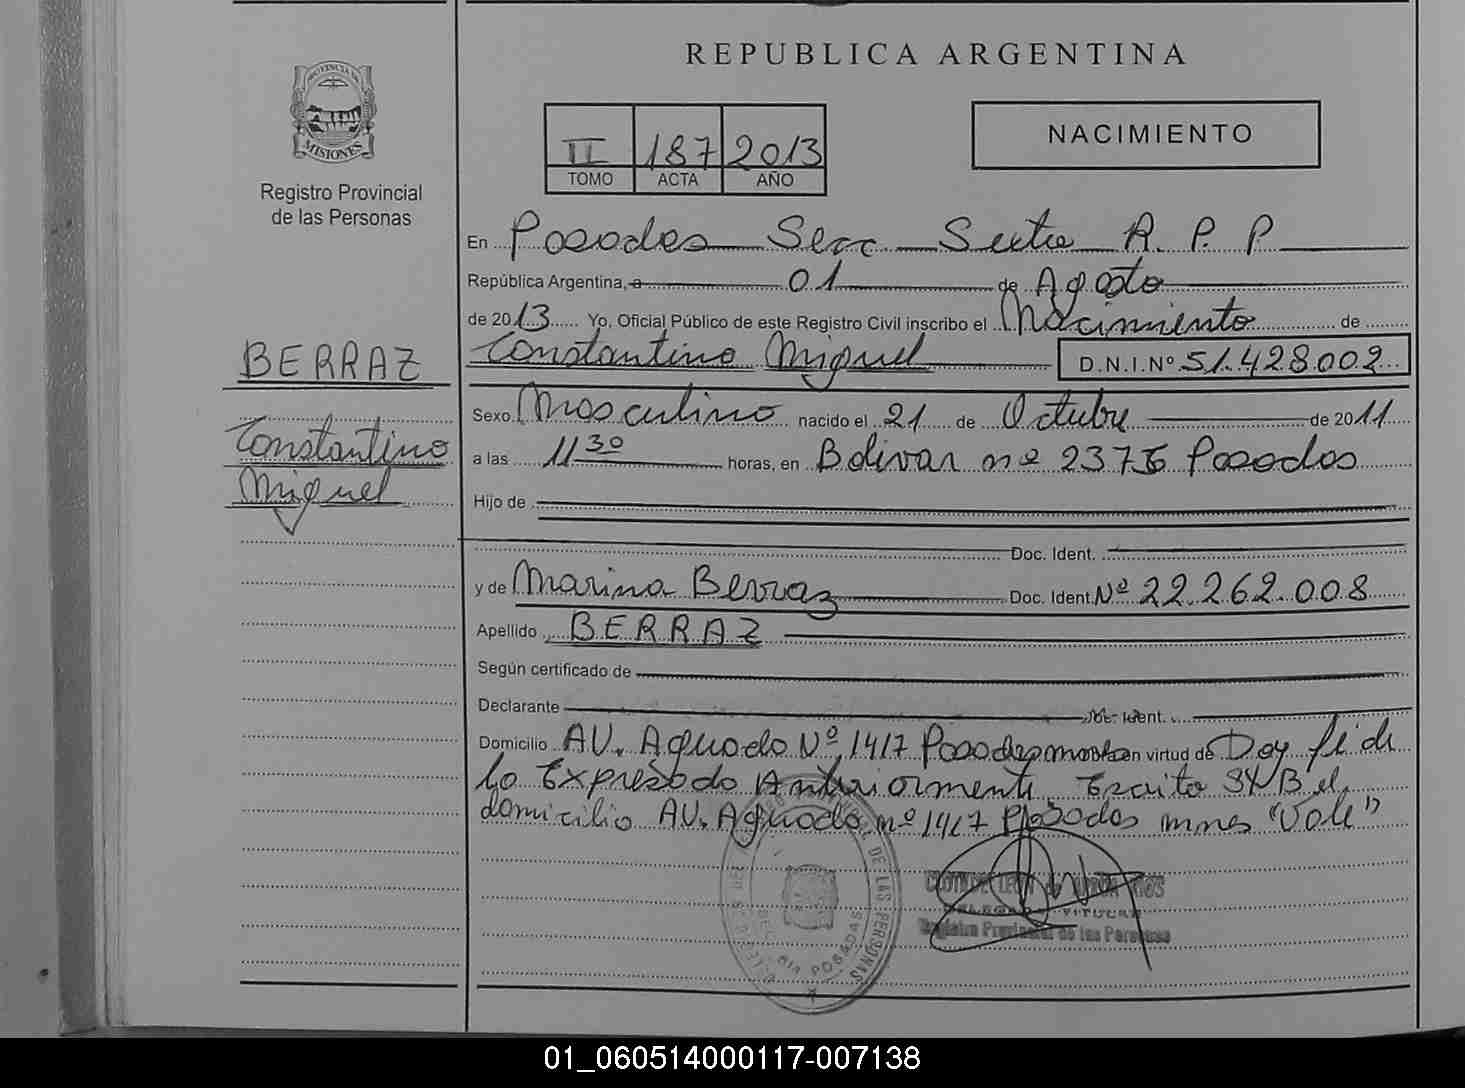 REPUBLICA ARGENTINA
PROVINCIA DE
MISIONES
Registro Provincial
de las Personas
II 187 2013
TOMO ACTA AÑO
NACIMIENTO
En Posadas Secc Sexta R. P. P
República Argentina, a 01 de Agosto
de 2013 Yo, Oficial Público de este Registro Civil inscribo el Nacimiento de
Constantino Miguel D.N.I.Nº 51.428.002
BERRAZ
Constantino
Miguel
Sexo Masculino nacido el 21 de Octubre de 2011
a las 11 30 horas, en Bolivar nº 2376 Posadas
Hijo de
Doc. Ident.
y de Marina Berraz Doc. Ident. Nº 22.262.008
Apellido BERRAZ
Según certificado de
Declarante Doc. Ident.
Domicilio AV. Aguado Nº 1417 Posadas mnes en virtud de Doy fe de
lo Expresado Anteriormente Escrito S/R B el
domicilio AV. Aguado nº 1417 Posadas mnes "Vale"
DE LAS PERSONAS
POSADAS
Registro Provincial de las Personas
01_060514000117-007138